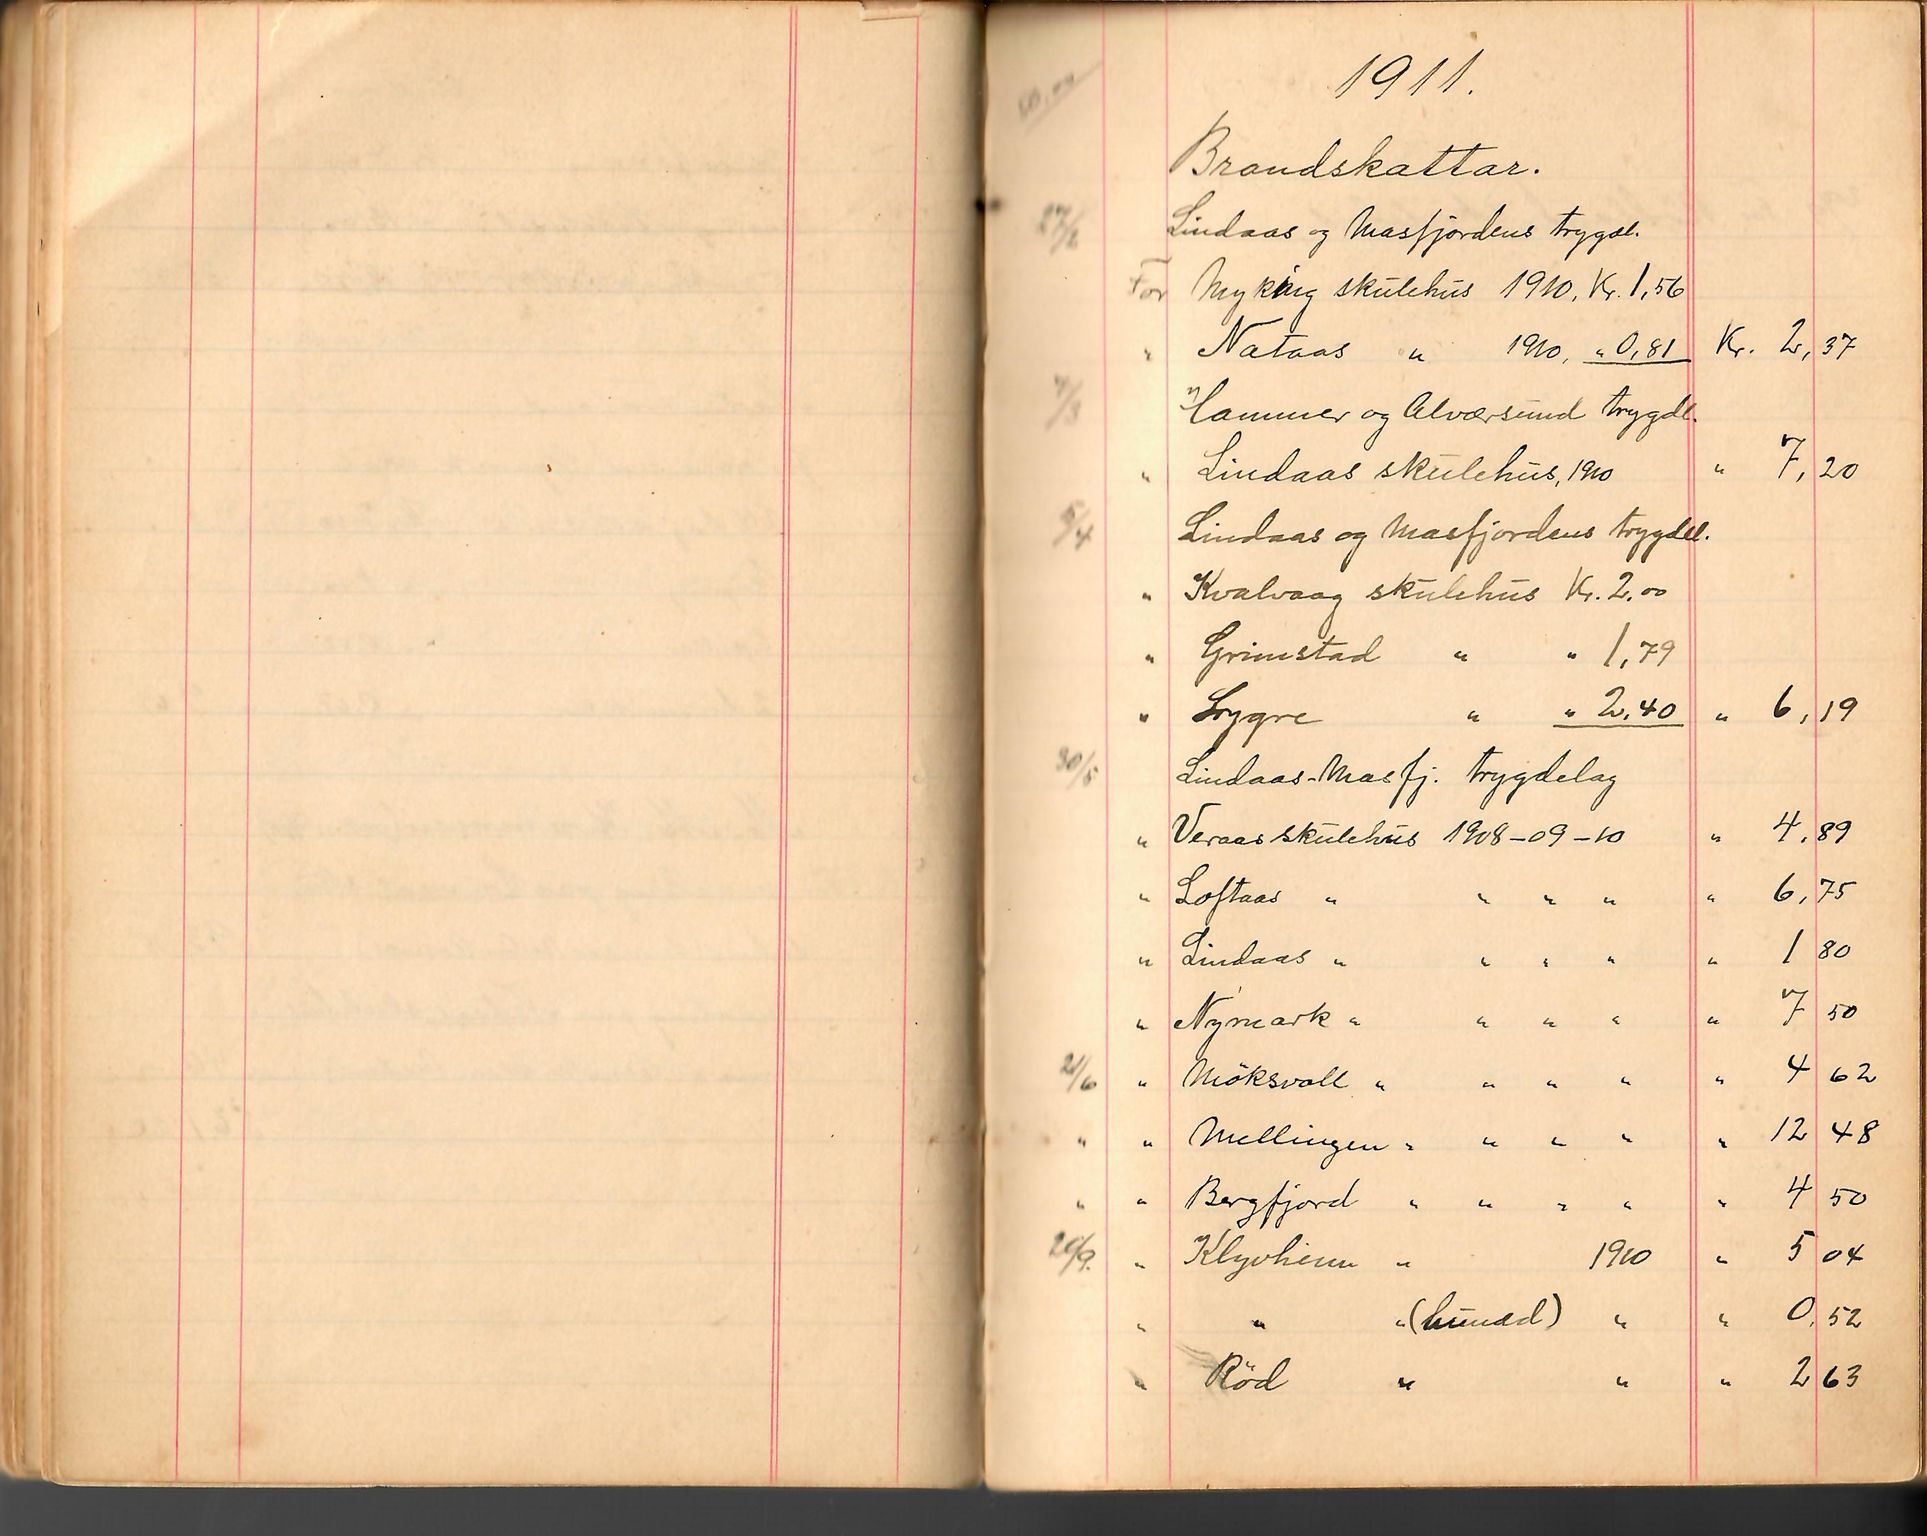 1911.
Brandskattar.
27/2 Lindaas og Masfjordens trygdl.
For Myking skulehus 1910, Kr. 1,56
" Nataas " 1910, " 0,81 Kr. 2,37
7/3 Hammer og Alværsund trygdl.
" Lindaas skulehus, 1910 " 7,20
5/4 Lindaas og Masfjordens trygdel.
" Kvalvaag skulehus Kr. 2.00
" Grimstad " " 1,79
" Lygre " " 2,40 " 6,19
30/5 Lindaas-Masfj. trygdelag
" Veraas skulehus 1908-09-10 " 4,89
" Loftaas " " " " " 6,75
" Lindaas " " " " " 1 80
" Nymark " " " " " 7 50
21/6 " Möksvoll " " " " " 4 62
" " Mellingen " " " " " 12 48
" " Bergfjord " " " " " 4 50
20/9. " Klyvheim " 1910 " 5 04
" " " ( ) " " 0,52
" Röd " " " 2 63